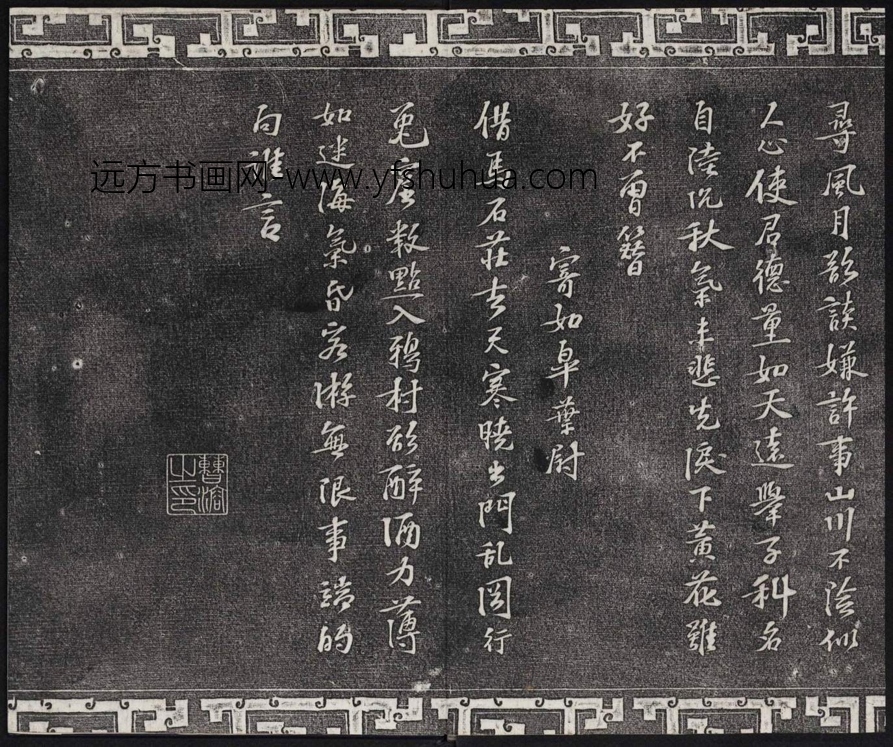 尋風月欲談嫌許事山川不險似
人心使君德量如天遠舉子科名
自陸沉秋氣未悲先淚下黃花雖
好不曾簪
寄如皐葉尉
借馬石莊去天寒曉出門乱岡行
兎窟数點入鴉村欲醉酒力薄
如迷海氣昏客游無限事端的
向誰言
曹溶之印
远方书画网-www.yfshuhua.com